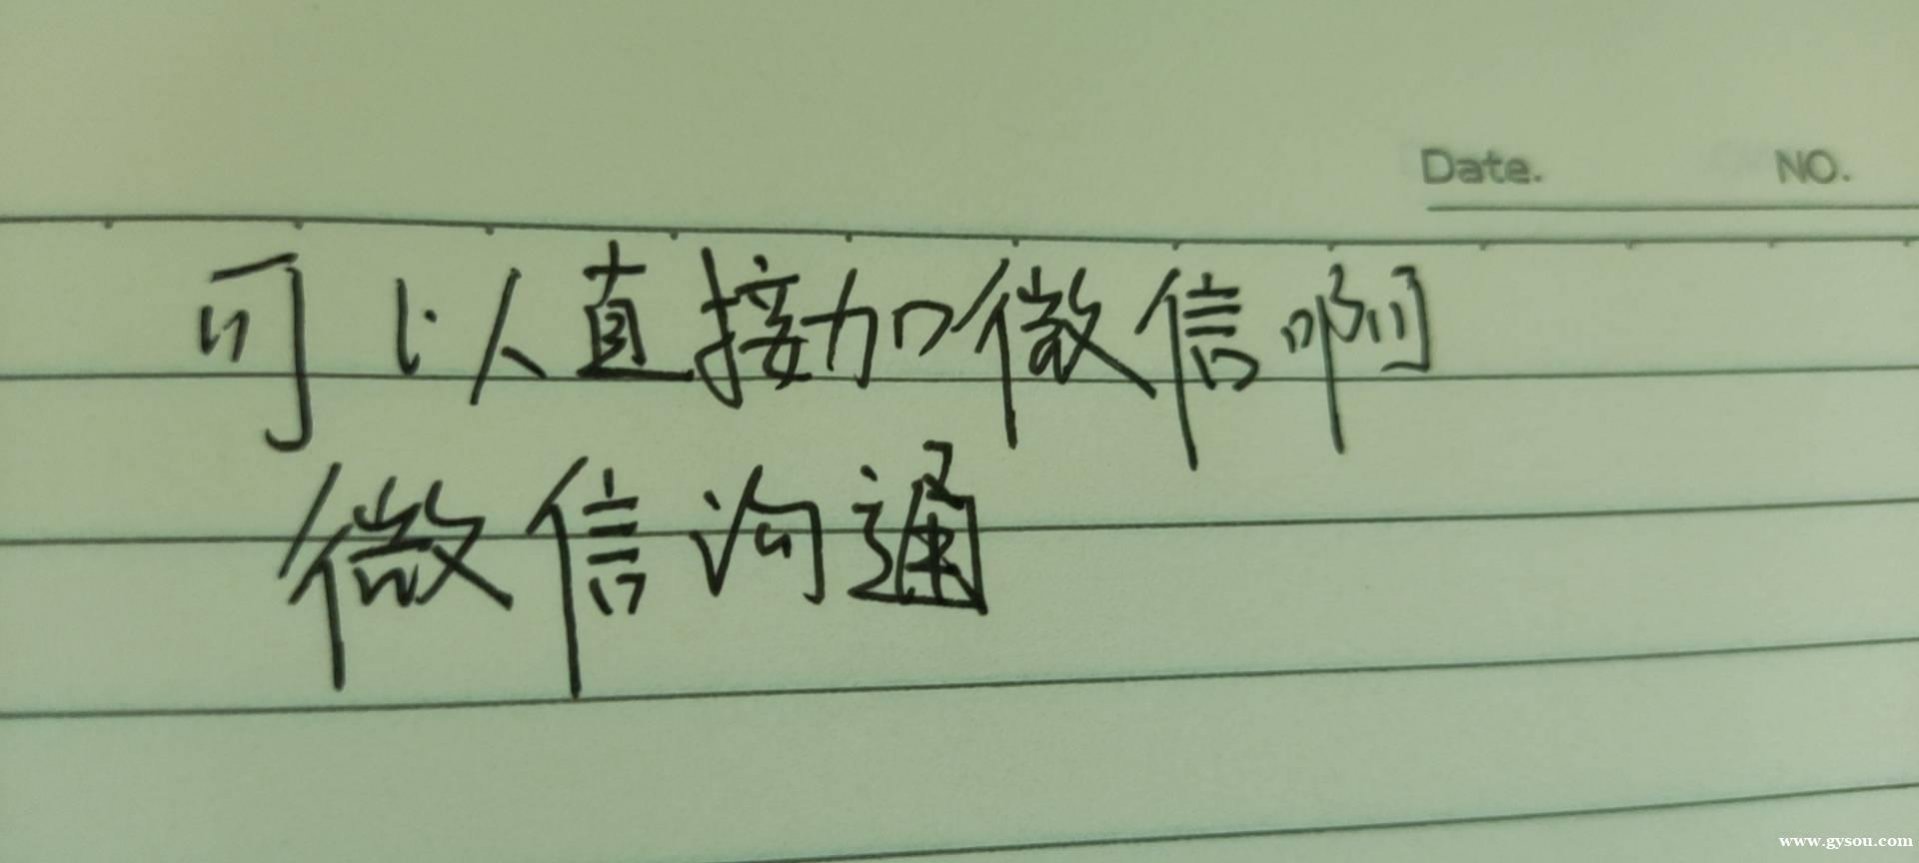 Date. NO.
可以直接加微信啊
微信沟通
www.gysou.com